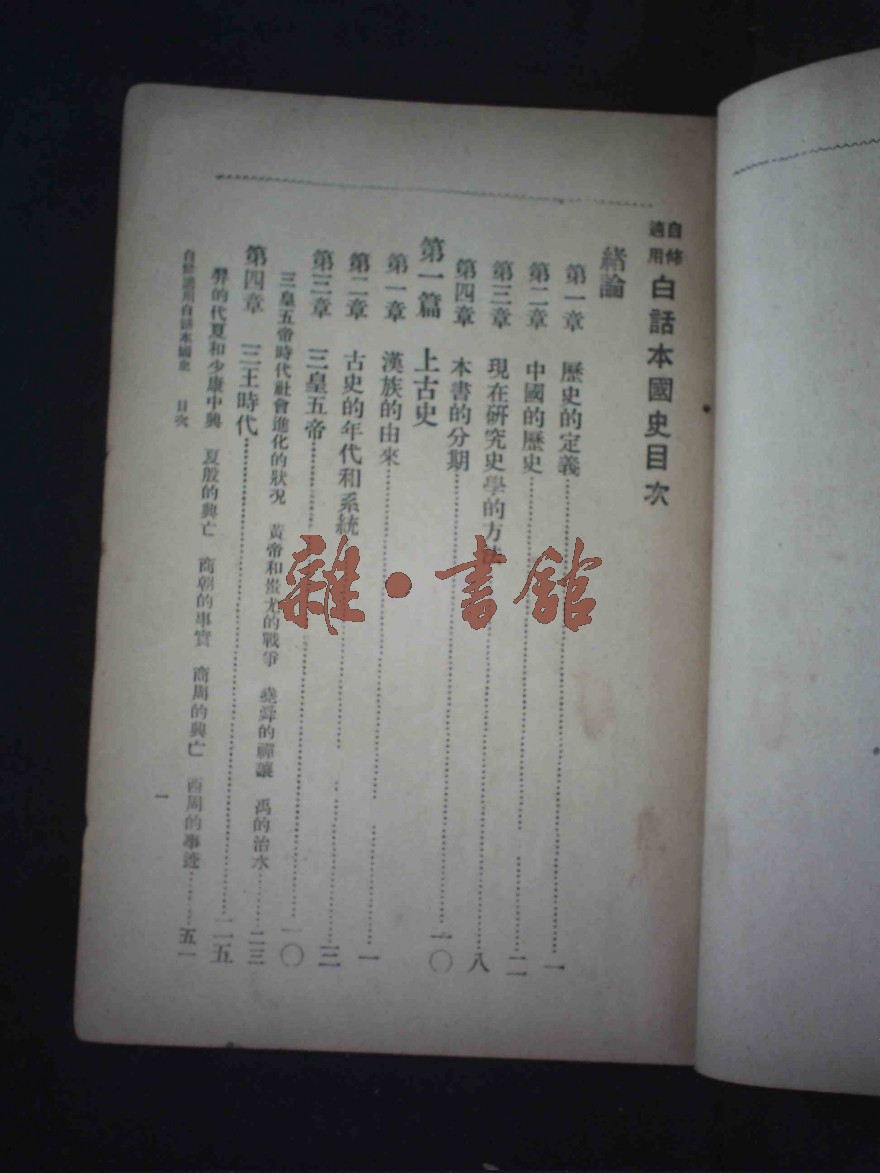 自修適用 白話本國史目次
緒論
第一章 歷史的定義……一
第二章 中國的歷史……二
第三章 現在研究史學的方法……八
第四章 本書的分期……一〇
第一篇 上古史
第一章 漢族的由來……一
第二章 古史的年代和系統……三
第三章 三皇五帝……一〇
三皇五帝時代社會進化的狀況 黃帝和蚩尤的戰爭 堯舜的禪讓 禹的治水……二三
第四章 三王時代……二五
羿的代夏和少康中興 夏殷的興亡 商朝的事實 商周的興亡 西周的事迹……五一
自修適用白話本國史 目次
一
雜·書館